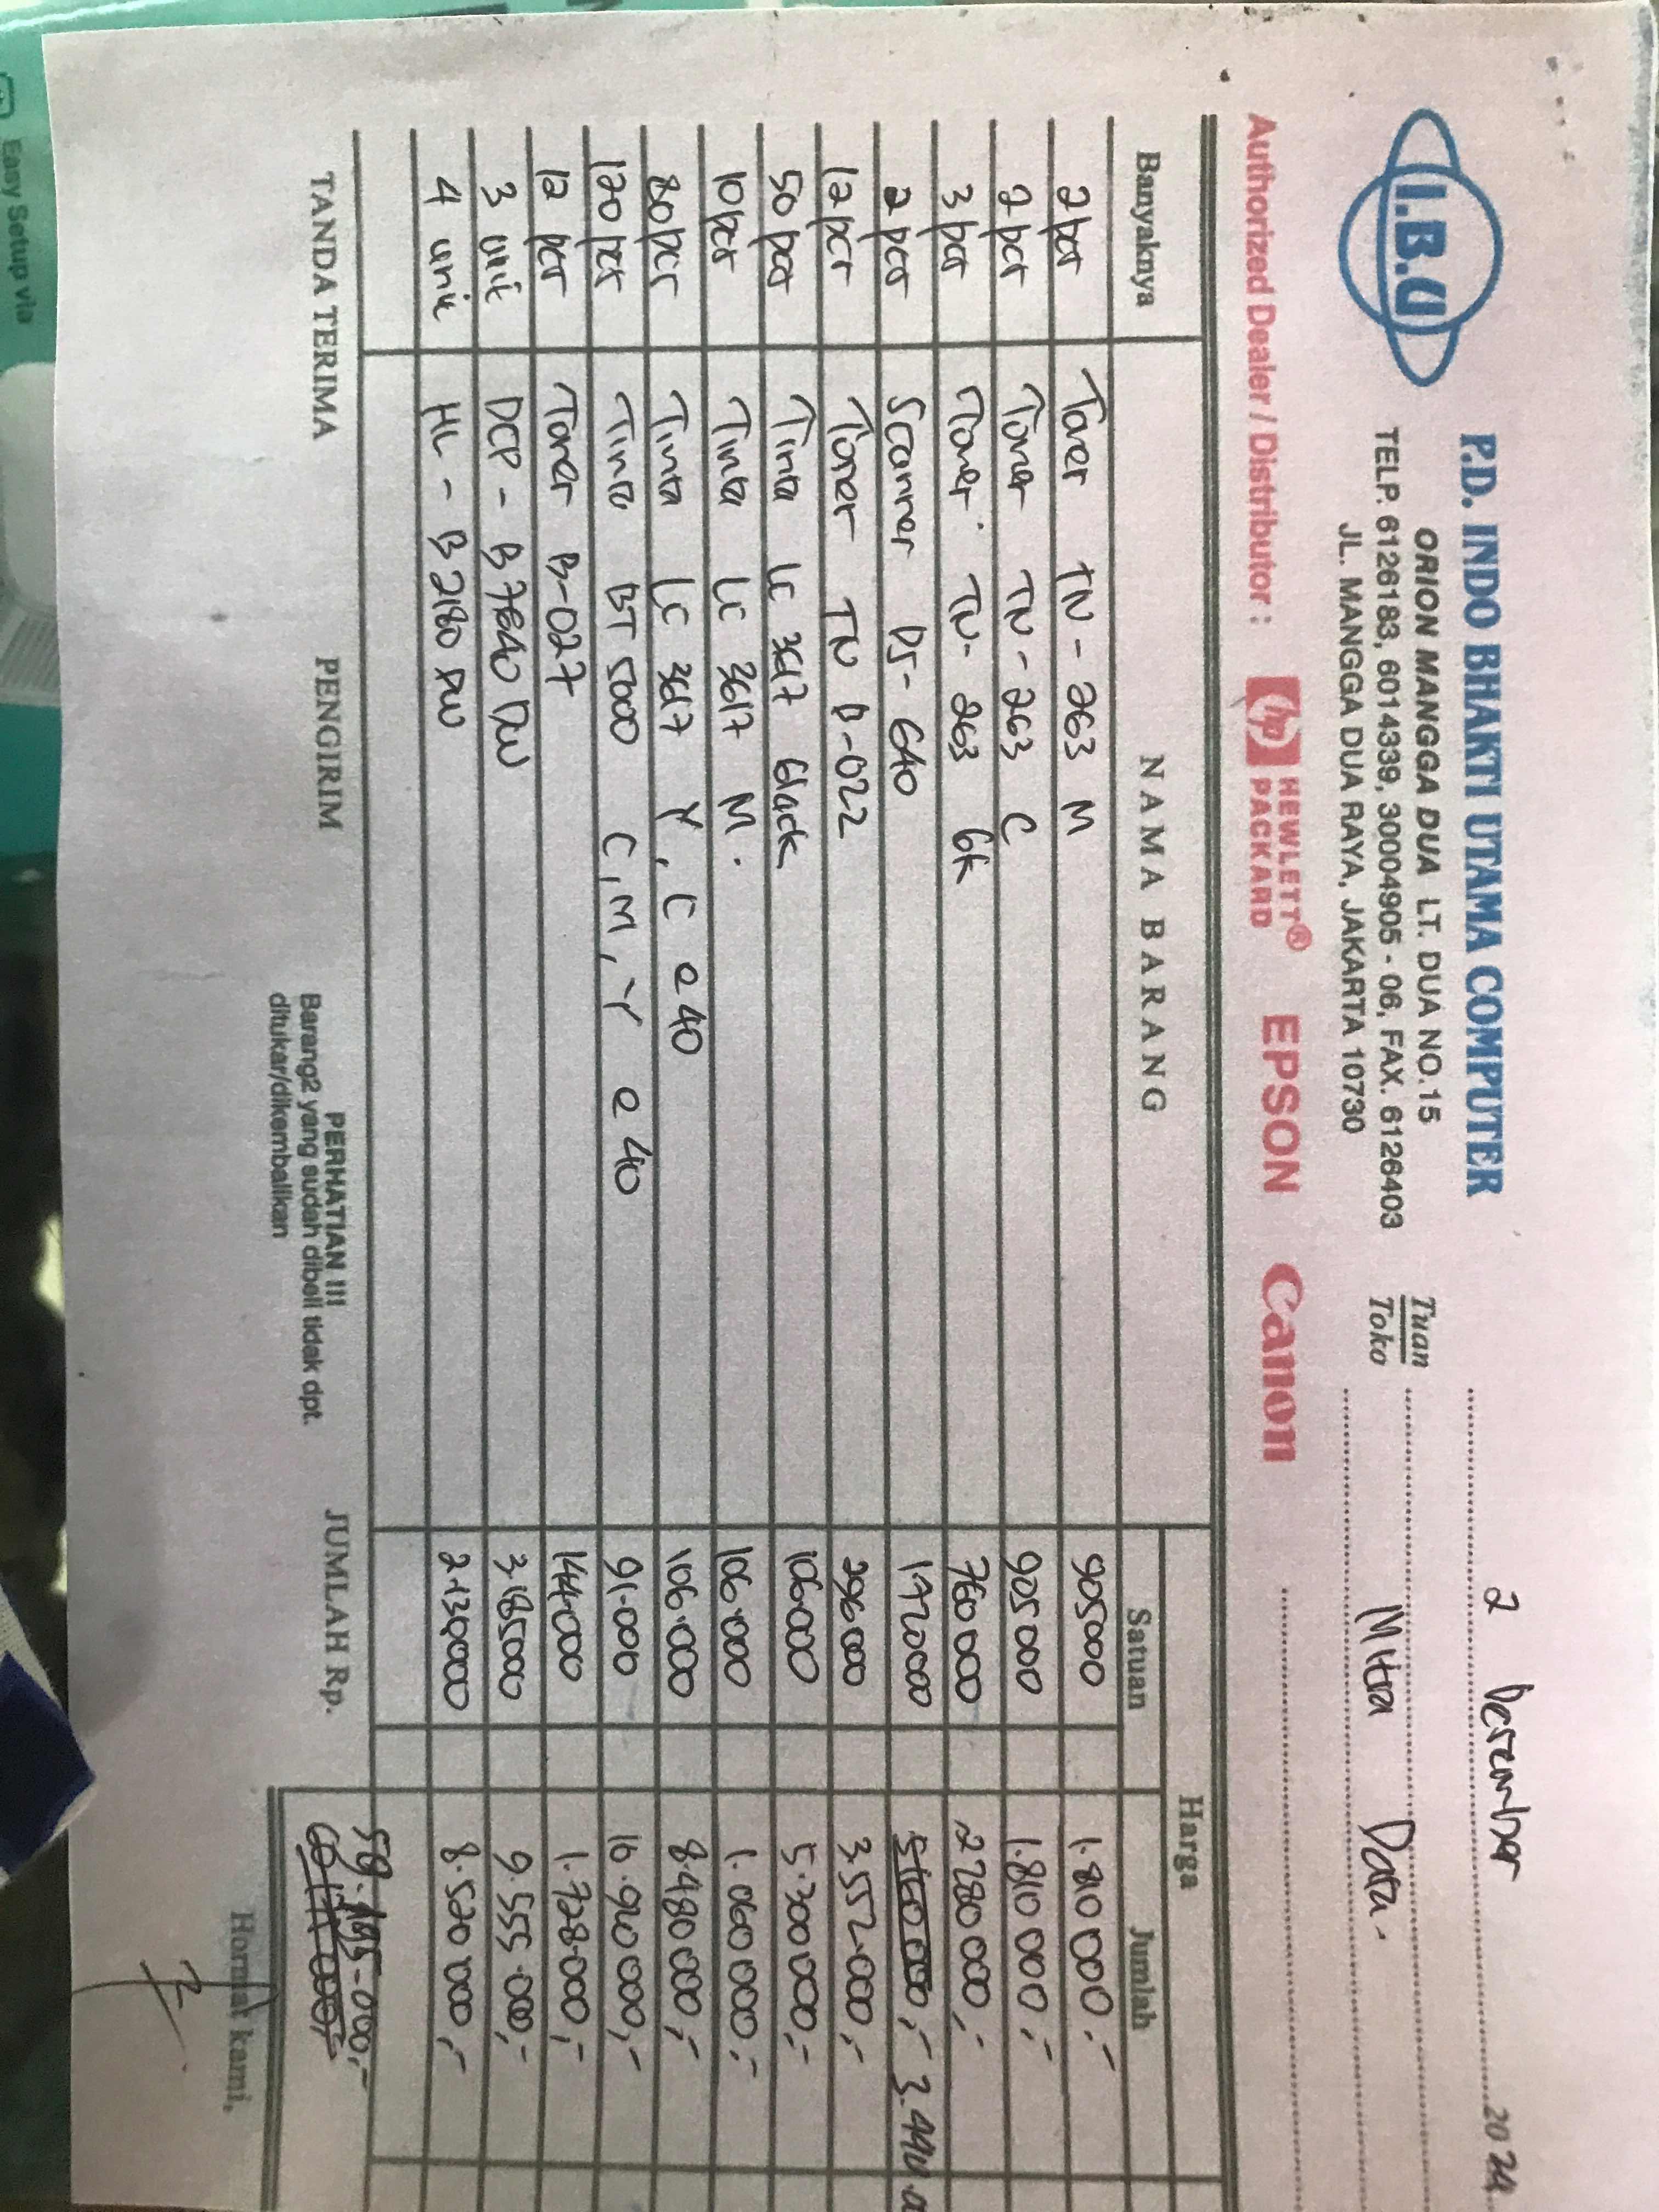 I.B.U
P.D. INDO BHAKTI UTAMA COMPUTER
ORION MANGGA DUA LT. DUA NO.15
TELP. 6126183, 6014339, 30004905 - 06, FAX. 6126403
JL. MANGGA DUA RAYA, JAKARTA 10730
2 Desember 2024
Tuan
Toko
Mitra Data -
Authorized Dealer / Distributor : hp HEWLETT® PACKARD EPSON Canon
Banyaknya NAMA BARANG Harga
Satuan Jumlah
2 pcs Toner TN - 263 M 905000 1.810 000 ,-
2 pcs Toner TN - 263 C 905 000 1.810 000 ,-
3 pcs Toner TN - 263 bk 760 000 2280 000 ,-
2 pcs Scanner DS - 640 1720000 3.440
12 pcs Toner TN B-022 296 000 3.552.000 ,-
50 pcs Tinta LC 3617 black 106.000 5.300 000 ,-
10 pcs Tinta LC 3617 M. 106.000 1.060 000 ,-
80 pcs Tinta LC 3617 Y, C @ 40 106.000 8.480 000 ,-
120 pcs Tinta BT 5000 C, M, Y @ 40 91.000 10.920 000 ,-
12 pcs Toner B-027 144.000 1.728.000 ,-
3 unit DCP - B 7640 DW 3.185000 9.555.000 ,-
4 unit HL - B 2180 DW 2.130000 8.520 000 ,-
TANDA TERIMA PENGIRIM PERHATIAN !!! JUMLAH Rp.
Barang2 yang sudah dibeli tidak dpt.
ditukar/dikembalikan
Hormat kami,
Easy Setup via